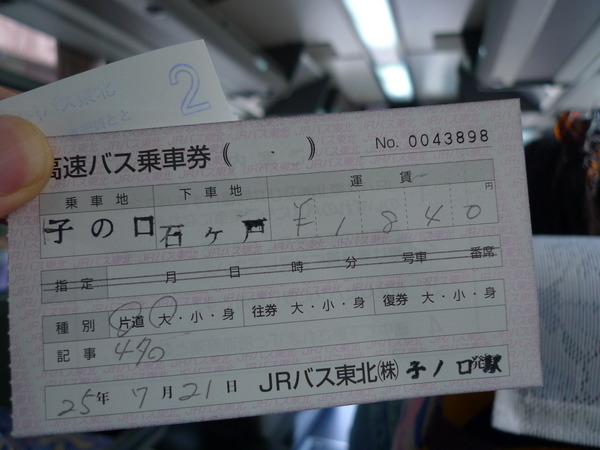 2
高速バス乗車券 ( ・ )
No. 0043898
乗車地 下車地 運賃
子の口 石ヶ戸 ¥1840円
指定 月 日 時 分 号車 番席
種別 片道 大・小・身 往券 大・小・身 復券 大・小・身
記事 470
25年 7月21日 JRバス東北㈱ 子ノ口発駅